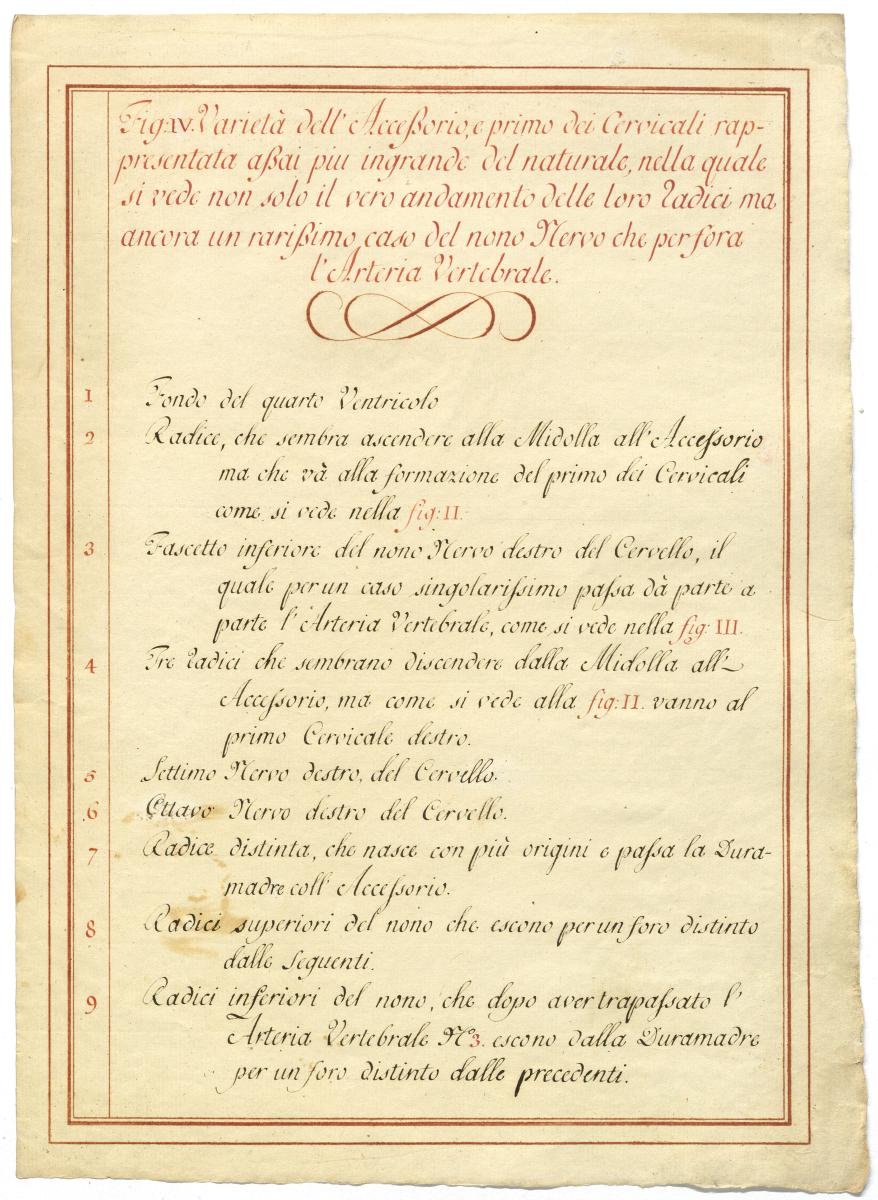 Fig: IV. Varietà dell' Accessorio, e primo dei Cervicali rap-
presentata assai piu ingrande del naturale, nella quale
si vede non solo il vero andamento delle loro Radici ma
ancora un rarissimo caso del nono Nervo che perfora
l'Arteria Vertebrale.
1 Fondo del quarto Ventricolo
2 Radice, che sembra ascendere alla Midolla all'Accessorio
ma che và alla formazione del primo dei Cervicali
come si vede nella fig: II.
3 Fascetto inferiore del nono Nervo destro del Cervello, il
quale per un caso singolarissimo passa dà parte a
parte l'Arteria Vertebrale, come si vede nella fig: III.
4 Tre Radici che sembrano discendere dalla Midolla all'
Accessorio, ma come si vede alla fig: II. vanno al
primo Cervicale destro.
5 Settimo Nervo destro, del Cervello.
6 Ottavo Nervo destro del Cervello.
7 Radice distinta, che nasce con più origini e passa la Dura-
madre coll' Accessorio.
8 Radici superiori del nono che escono per un foro distinto
dalle seguenti.
9 Radici inferiori del nono, che dopo aver trapassato l'
Arteria Vertebrale N.º 3. escono dalla Duramadre
per un foro distinto dalle precedenti.